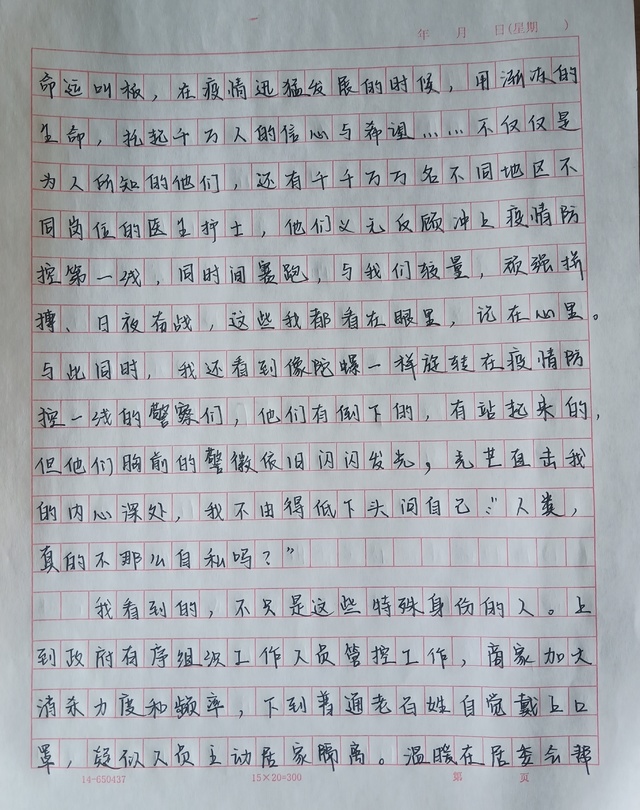 年 月 日(星期 )
命运叫板，在疫情迅猛发展的时候，用渐冻的
生命，托起千万人的信心与希望……不仅仅是
为人所知的他们，还有千千万万名不同地区不
同岗位的医生护士，他们义无反顾冲上疫情防
控第一线，同时间赛跑，与我们较量，顽强拼
搏、日夜奋战，这些我都看在眼里，记在心里。
与此同时，我还看到像陀螺一样旋转在疫情防
控一线的警察们，他们有倒下的，有站起来的，
但他们胸前的警徽依旧闪闪发光，光芒直击我
的内心深处，我不由得低下头问自己："人类，
真的不那么自私吗？"
我看到的，不只是这些特殊身份的人。上
到政府有序组织工作人员管控工作，商家加大
消杀力度和频率，下到普通老百姓自觉戴上口
罩，疑似人员主动居家隔离。温暖在居委会帮
14-650437 15×20=300 第 页